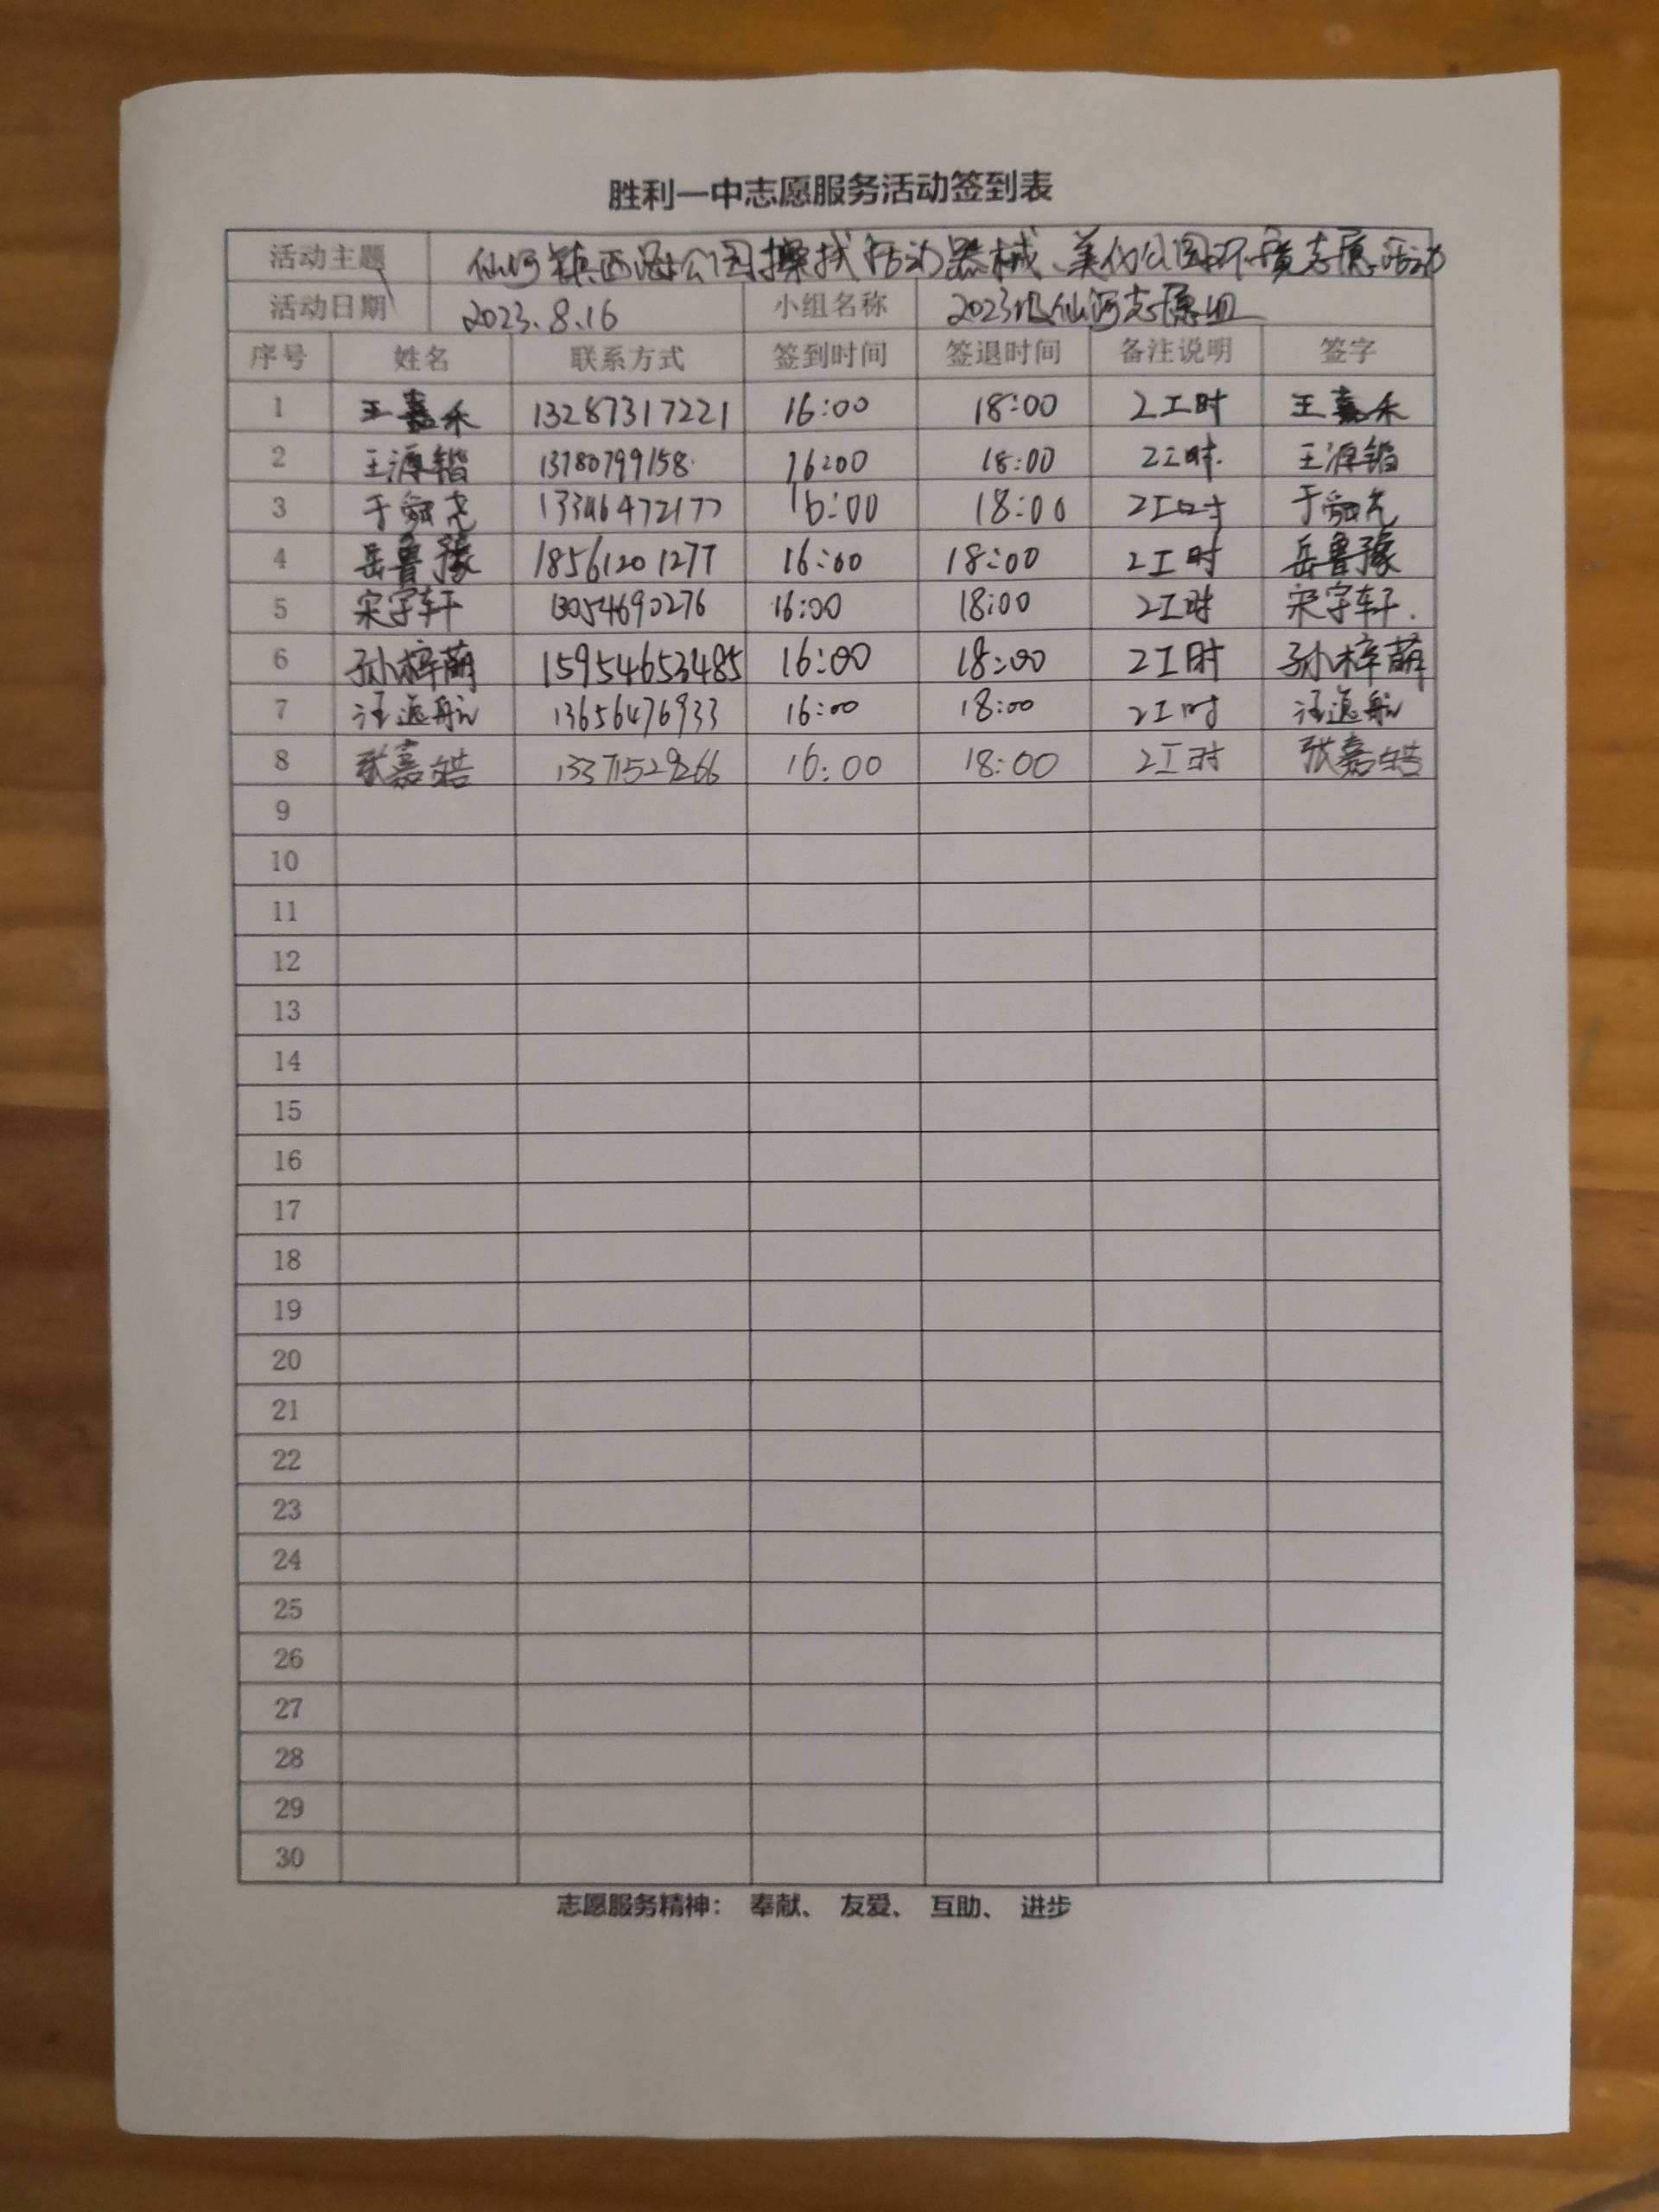 胜利一中志愿服务活动签到表
活动主题 仙河镇西海公园擦拭活动器械、美化公园环境志愿活动
活动日期 2023.8.16 小组名称 2023级仙河志愿组
序号 姓名 联系方式 签到时间 签退时间 备注说明 签字
1 王嘉禾 13287317221 16:00 18:00 2工时 王嘉禾
2 王源锴 13780799158 16:00 18:00 2工时. 王源锴
3 于 13346472177 16:00 18:00 2工时 于
4 岳鲁豫 18561201277 16:00 18:00 2工时 岳鲁豫
5 宋宇轩 13054690276 16:00 18:00 2工时 宋宇轩.
6 孙梓萌 15954653485 16:00 18:00 2工时 孙梓萌
7 汪逸航 13656476933 16:00 18:00 2工时 汪逸航
8 张嘉皓 13371529266 16:00 18:00 2工时 张嘉皓
9
10
11
12
13
14
15
16
17
18
19
20
21
22
23
24
25
26
27
28
29
30
志愿服务精神： 奉献、 友爱、 互助、 进步